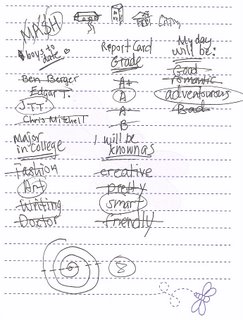 NASH
Living
boys to date
Report Card Grade
My day will be:
Ben Berger
Edgar T.
JTT
Chris Mitchell
A+
A
A
B
Good
romantic
adventourous
Bad
Major in college
I will be known as
Fashion
Art
Writing
Doctor
creative
pretty
smart
friendly
8